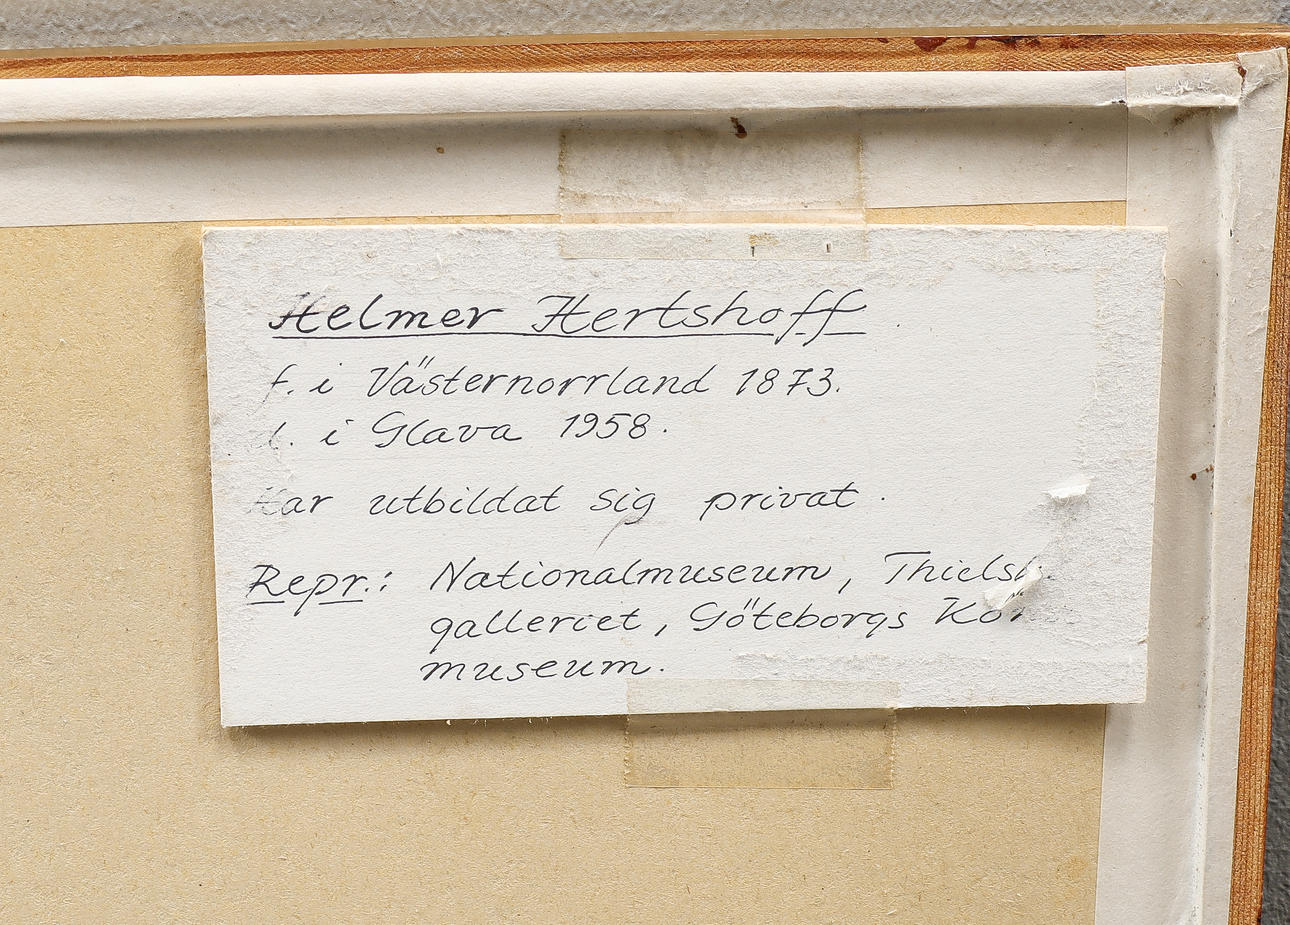 Helmer Hertshoff
f. i Västernorrland 1873.
d. i Glava 1958.
Har utbildat sig privat.
Repr.: Nationalmuseum,
galleriet, Göteborgs
museum.